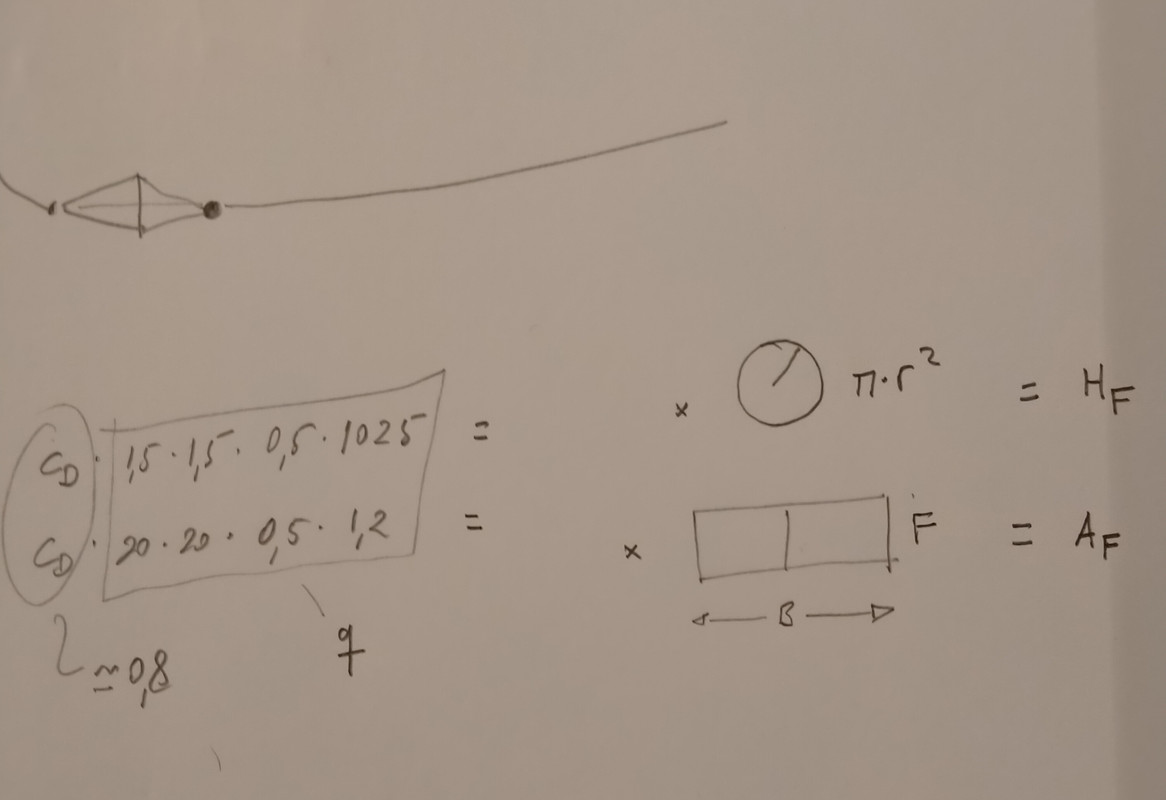 C_D · 1,5 · 1,5 · 0,5 · 1025 = × π·r² = H_F
C_D · 20 · 20 · 0,5 · 1,2 = × F = A_F
B
≃0,8
q